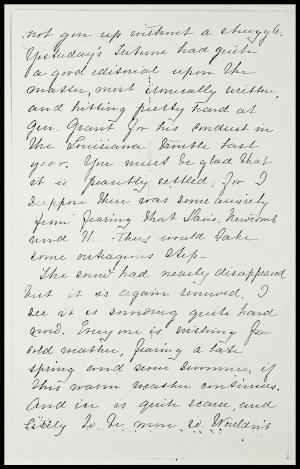 not give up without a struggle.
Yesterday's Tribune had quite
a good editorial upon the
matter, most ironically written,
and hitting pretty hard at
Gen. Grant for his conduct in
the Louisiana trouble last
year. You must be glad that
it is peaceably settled, for I
suppose there was some anxiety
from fearing that Davis, Newcomb
and they would take
some outrageous step—
The snow had nearly disappeared
but it is again renewed. I
see it is snowing quite hard
now. Everyone is wishing for
cold weather, fearing a late
spring and some summer, if
this warm weather continues.
And ice is quite scarce, and
likely to be more so. Wouldn't